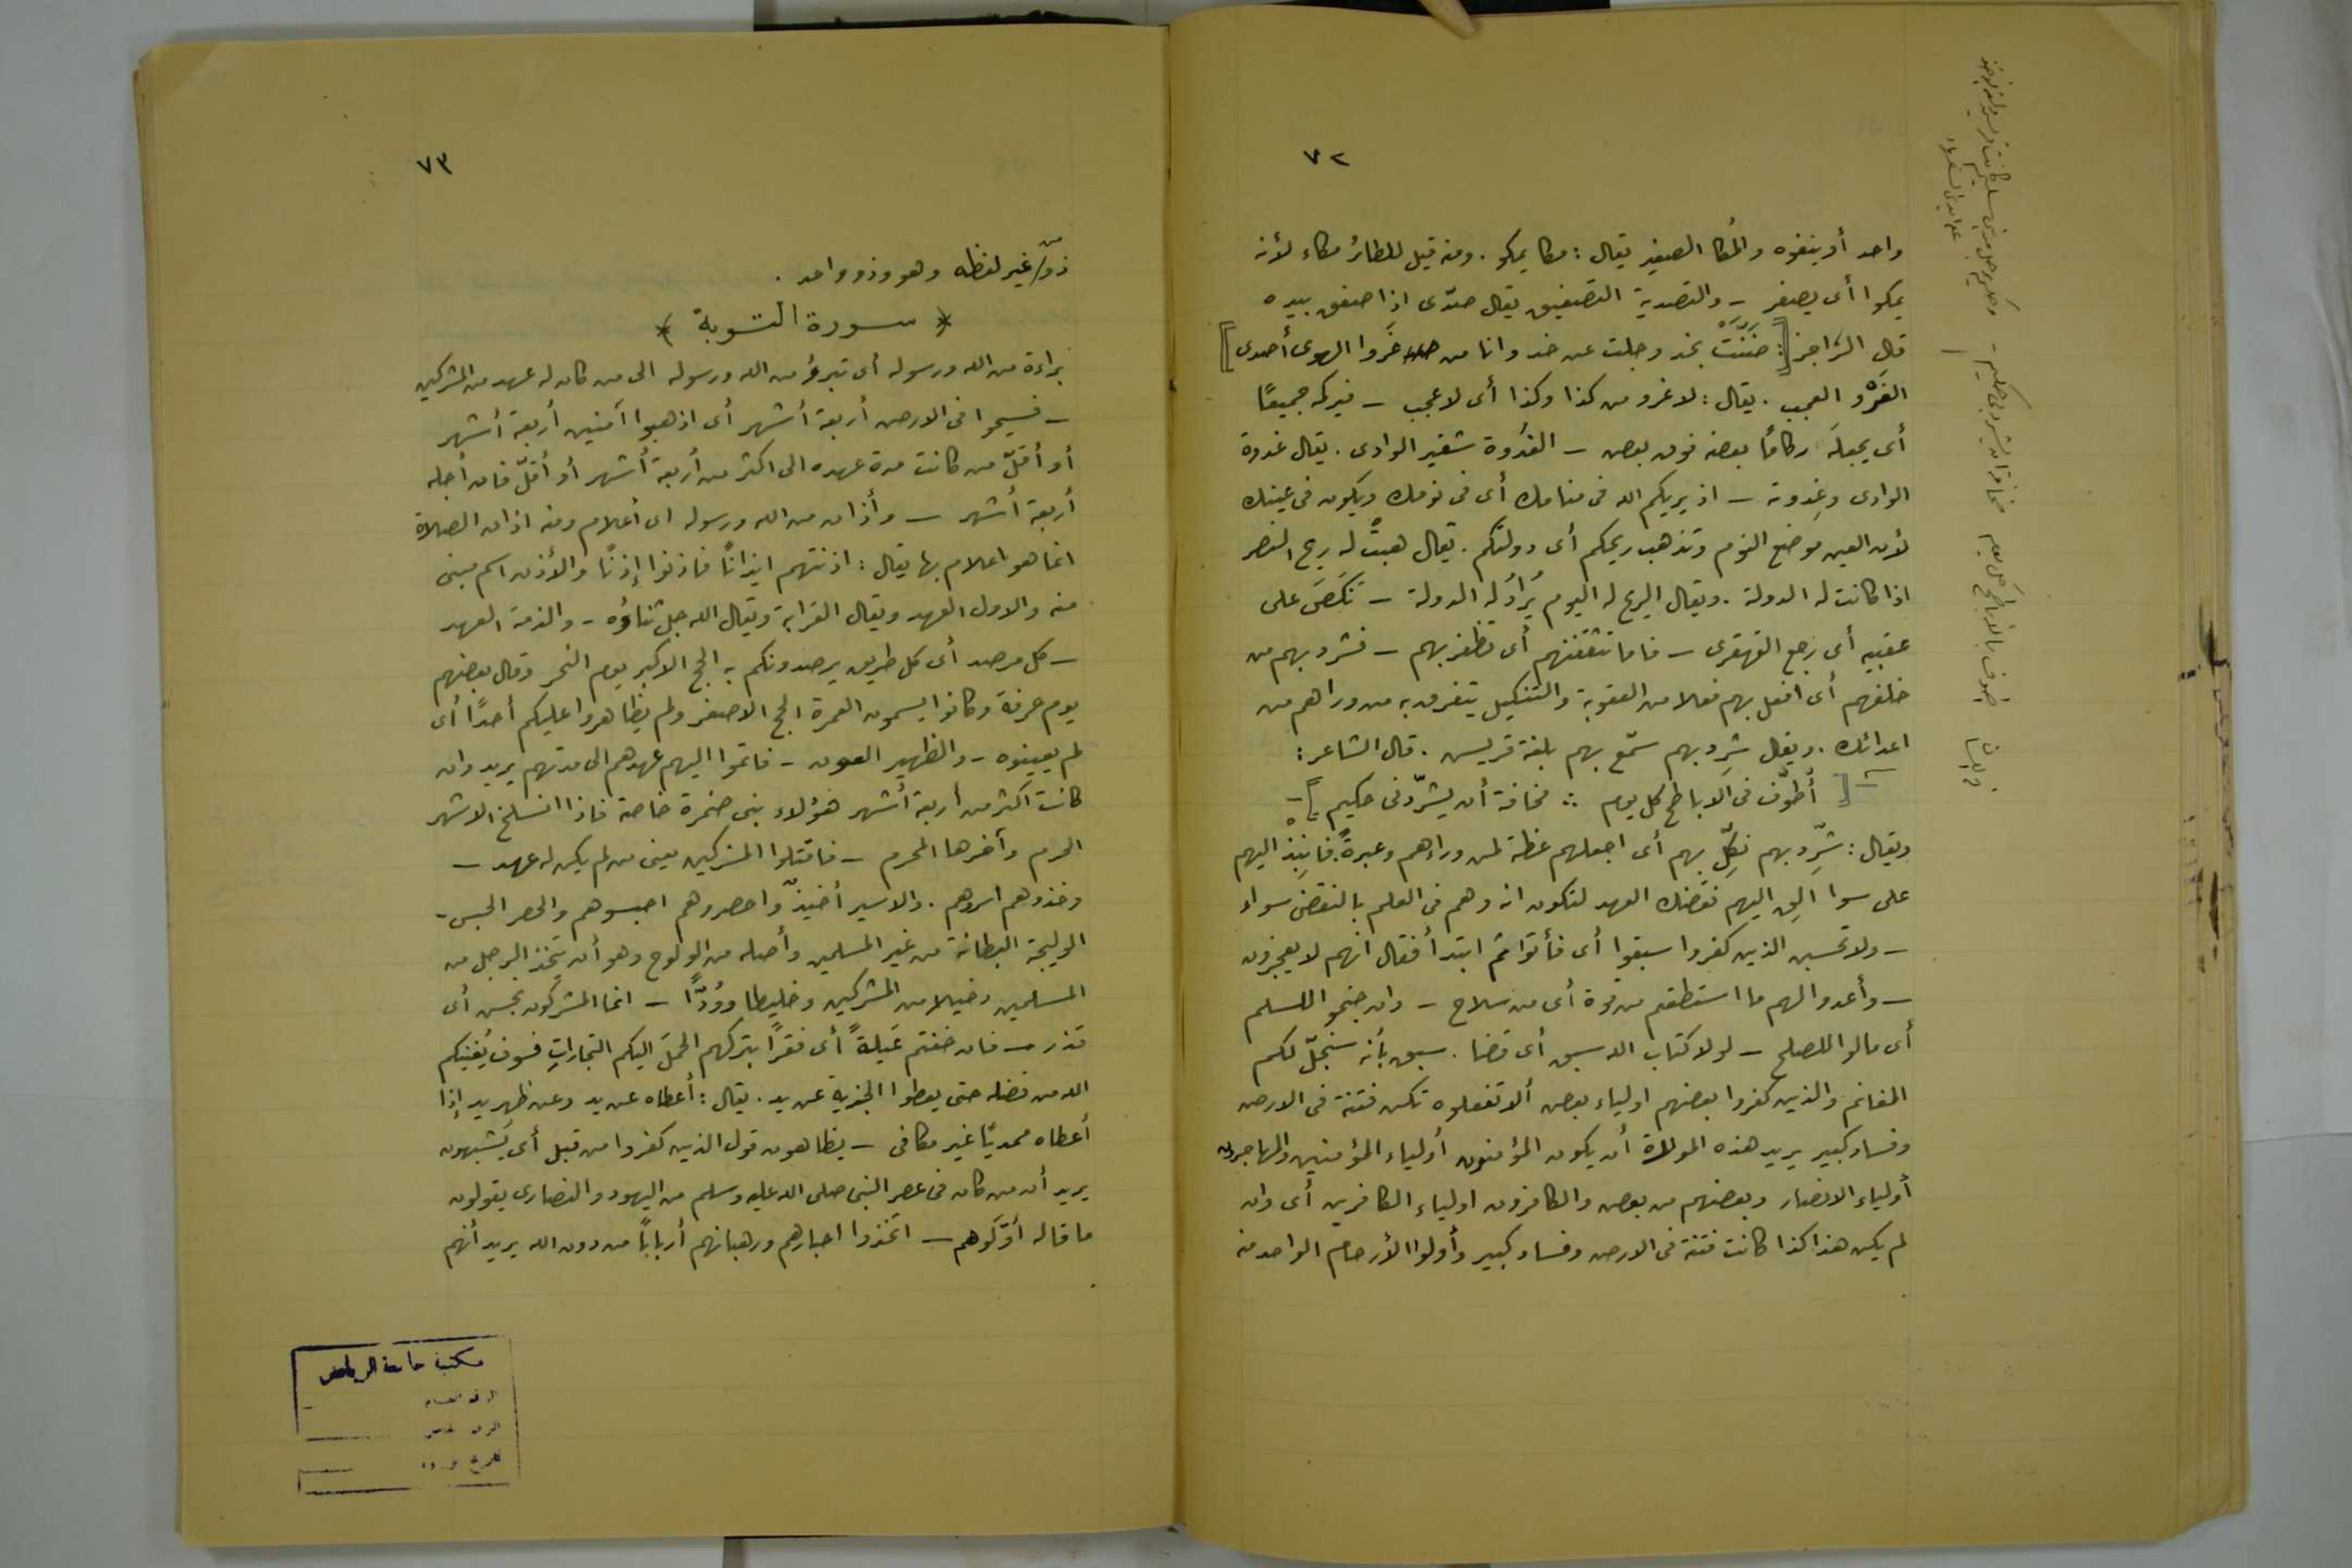 ٧٢
واحد أو ينفوه والمُكا الصفير يقال : مكا يمكو . ومنه قيل للطائر مكاء لأنه
يمكوا أى يصفر – والتصدية التصفيق يقال صدّى اذا صفق بيده
قال الراجز [: ضَنَّتْ بخد وجلت عن خد وانا من غَروا الهوى أصدى]
الغَرْو العجب . يقال : لا غرو من كذا وكذا أى لا عجب – فيركمه جميعًا
أى يجعله ركامًا بعضه فوق بعض – العُدوة شفير الوادى . يقال عدوة
الوادى وعِدوته – اذ يريكهم الله فى منامك أى فى نومك ويكون فى عينك
لأن العين موضع النوم وتذهب ريحكم أى دولتكم . يقال هبتْ له ريح النصر
اذا كانت له الدولة . ويقال الريح له اليوم يُرادُ له الدولة – نَكَصَ على
عقبيه أى رجع القهقرى – فاما تثقفنهم أى تظفر بهم – فشرد بهم من
خلفهم أى افعل بهم فعلا من العقوبة والتنكيل يتفرق به من وراهم من
اعدائك . ويقال شرد بهم سمّع بهم بلغة قريس . قال الشاعر :
[ أطوّف فى الاباطح كل يوم ∴ مخافة أن يشرّدنى حكيم ]
ويقال : شرّد بهم نكّل بهم أى اجعلهم عظة لمن وراءهم وعبرةً. فانبِذ اليهم
على سوا القِ اليهم نقضك العهد لتكون انه وهم فى العلم بالنقض سواء
– ولا تحسبن الذين كفروا سبقوا أى فأتوا ثم ابتدأ فقال انهم لا يعجزون
– وأعدوا لهم ما استطعتم من قوة أى من سلاح – وان جنحوا للسلم
أى مالوا للصلح – لولا كتاب الله سبق أى قضا . سبق بأنه سيحلّ لكم
المغانم والذين كفروا بعضهم اولياء بعض ألا تفعلوه تكن فتنة فى الارض
وفساد كبير يريد هذه الموالاة أن يكون المؤمنون أولياء المؤمنين والمهاجرون
أولياء الانصار وبعضهم من بعض والكافرون اولياء الكافرين أى وان
لم يكن هذا كذا كانت فتنة فى الارض وفساد كبير وأولوا الأرحام الواحد منه
٧٣
ذو من غير لفظه وهو وذو واحد .
﴿ سورة التوبة ﴾
براءة من الله ورسوله أى تبرؤ من الله ورسوله الى من كان له عهد من المشركين
– فسيحوا فى الارض أربعة أشهر أى اذهبوا آمنين أربعة أشهر
أو أقلّ من كانت مدة عهده الى اكثر من أربعة أشهر أو أقلّ فان أجله
أربعة أشهر – وأذان من الله ورسوله اى أعلام ومنه اذان الصلاة
انما هو اعلام بها يقال : اذنتهم ايذانًا فاذنوا إذنًا والأذن اسم مبنى
منه والاول العهد ويقال القرابة ويقال الله جل ثناؤه – والذمة العهد
– كل مرصد أى كل طريق يرصدونكم به الحج الاكبر يوم النحر وقال بعضهم
يوم عرفة وكانوا يسمون العمرة الحج الاصغر ولم يظاهروا عليكم أحدًا أى
لم يعينوه – والظهير العون – فاتموا اليهم عهدهم الى مدتهم يريد وان
كانت اكثر من أربعة أشهر هؤلاء بنى ضمرة خاصة فاذا انسلخ الاشهر
الحرم وآخرها المحرم – فاقتلوا المشركين يعنى من لم يكن له عهد –
وخذوهم اسروهم . والاسير أخيذٌ واحصروهم احبسوهم والحصر الحبس –
الوليجة البطانة من غير المسلمين وأصله من الولوج وهو أن يتخذ الرجل من
المسلمين دخيلا من المشركين وخليطا وودًّا – انما المشركون نجس أى
قذر – فان خفتم عَيلةً أى فقرًا بتركهم الحملَ اليكم التجاراتِ فسوف يُغنيكم
الله من فضله حتى يعطوا الجزية عن يد . يقال : أعطاه عن يد وعن ظهر يد إذا
أعطاه مبتديًا غير مكافى – يظاهون قول الذين كفروا من قبل أى يشبهون
يريد أن من كان فى عصر النبى صلى الله عليه وسلم من اليهود والنصارى يقولون
ما قاله أوّلوهم – اتخذوا احبارهم ورهبانهم أربابًا من دون الله يريد أنهم
مكتبة جامعة الرياض